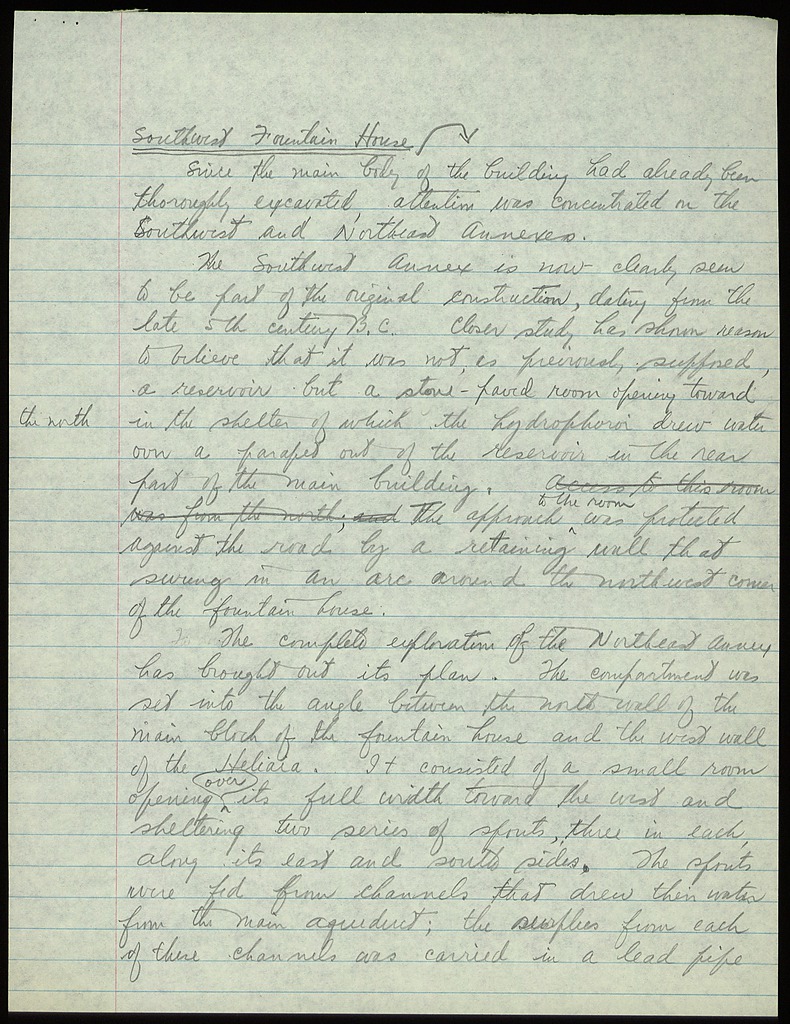 Southwest Fountain House
Since the main body of the building had already been
thoroughly excavated, attention was concentrated on the
Southwest and Northeast Annexes.
The Southwest Annex is now clearly seen
to be part of the original construction, dating from the
late 5th century B.C. Closer study has shown reason
to believe that it was not, as previously supposed,
a reservoir but a stone-paved room opening toward
the north
in the shelter of which the hydrophoroi drew water
over a parapet out of the reservoir in the rear
part of the main building. Access to this room
was from the north, and The approach to the room was protected
against the road by a retaining wall that
swung in an arc around the northwest corner
of the fountain house.
The complete exploration of the Northeast Annex
has brought out its plan. The compartment was
set into the angle between the north wall of the
main block of the fountain house and the west wall
of the Heliaia. It consisted of a small room
opening over its full width toward the west and
sheltering two series of spouts, three in each,
along its east and south sides. The spouts
were fed from channels that drew their water
from the main aqueduct; the surplus from each
of these channels was carried in a lead pipe